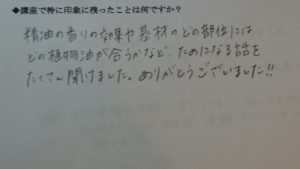 ◆講座で特に印象に残ったことは何ですか？
精油の香りの効果や基材のどの部位には
どの植物油が合うかなど、ためになる話を
たくさん聞けました。ありがとうございました!!